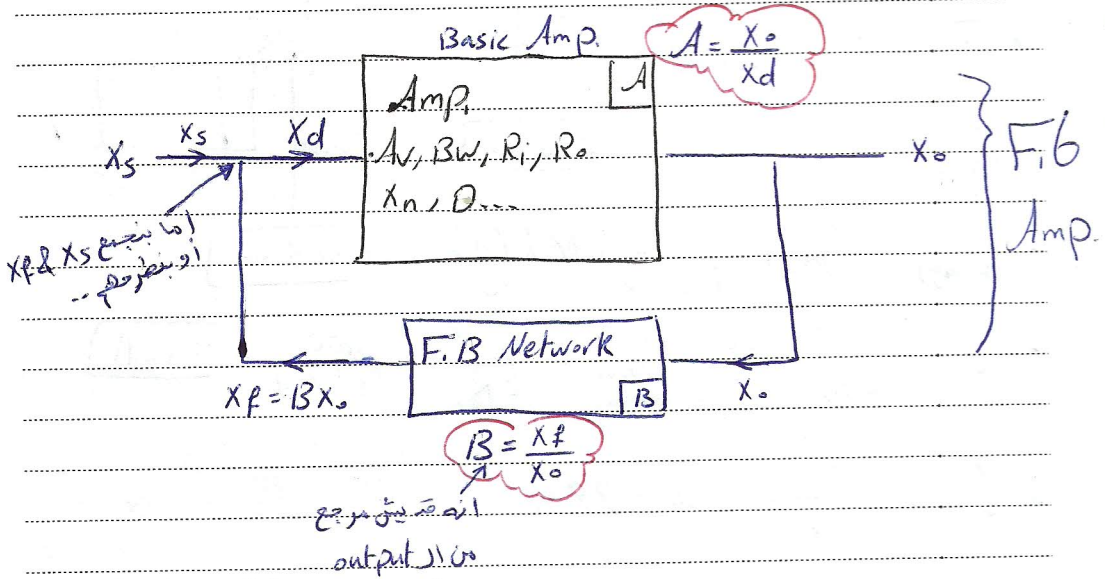 Basic Amp.
A = Xo / Xd
A
Amp.
Av, BW, Ri, Ro
Xn, D...
Xs
Xs
Xd
Xo
F.B
Amp.
اما بنجمع Xf & Xs
أو بنطرحهم ..
F.B Network
B
Xf = BXo
Xo
B = Xf / Xo
انه قديش مرجع
من الـ output